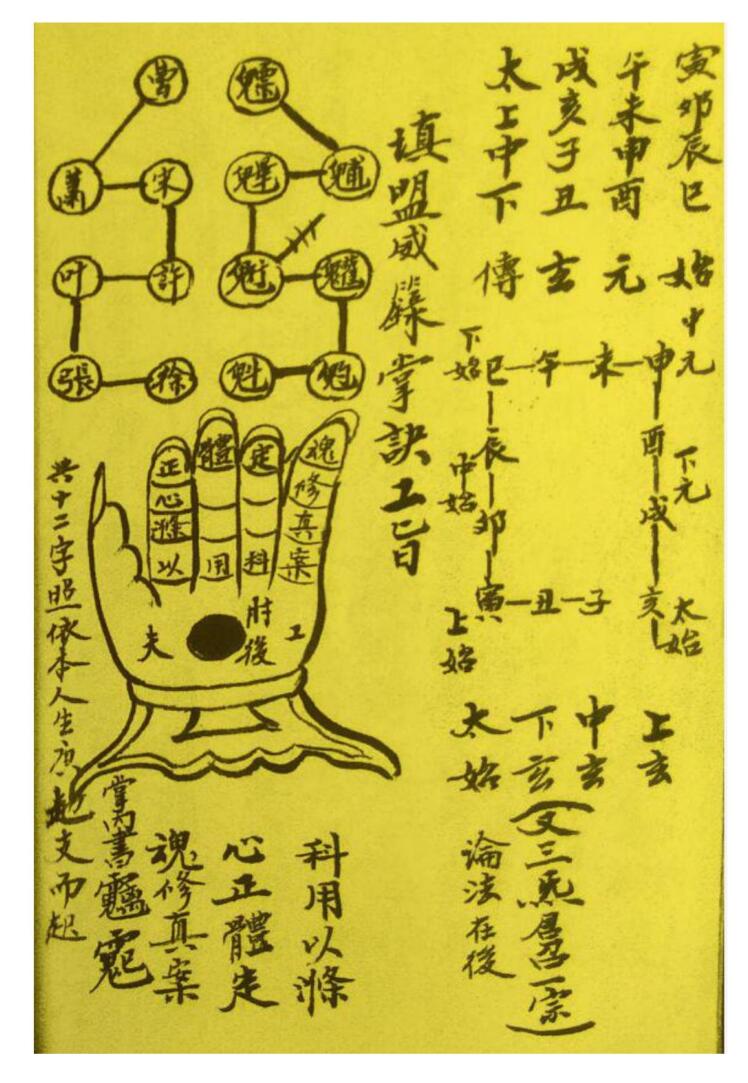 寅卯辰巳 始
午未申酉 元
戌亥子丑 玄
太上中下 傳
中元
下始 巳 午 未 申
酉 下元
中始 辰
戌
卯
上始 寅 丑 子 亥 太始
上玄
中玄
下玄
太始
(又三炁君召一宗)
論法在後
填盟威籙掌訣工旨
曹
蕭 宋
叶 許
張 徐
正 體 定 魂
心 修
滌 真
以 用 料 案
夫 肘後 工
科用以滌
心正體定
魂修真案
掌內書
共十二字照依本人生庚起支而起